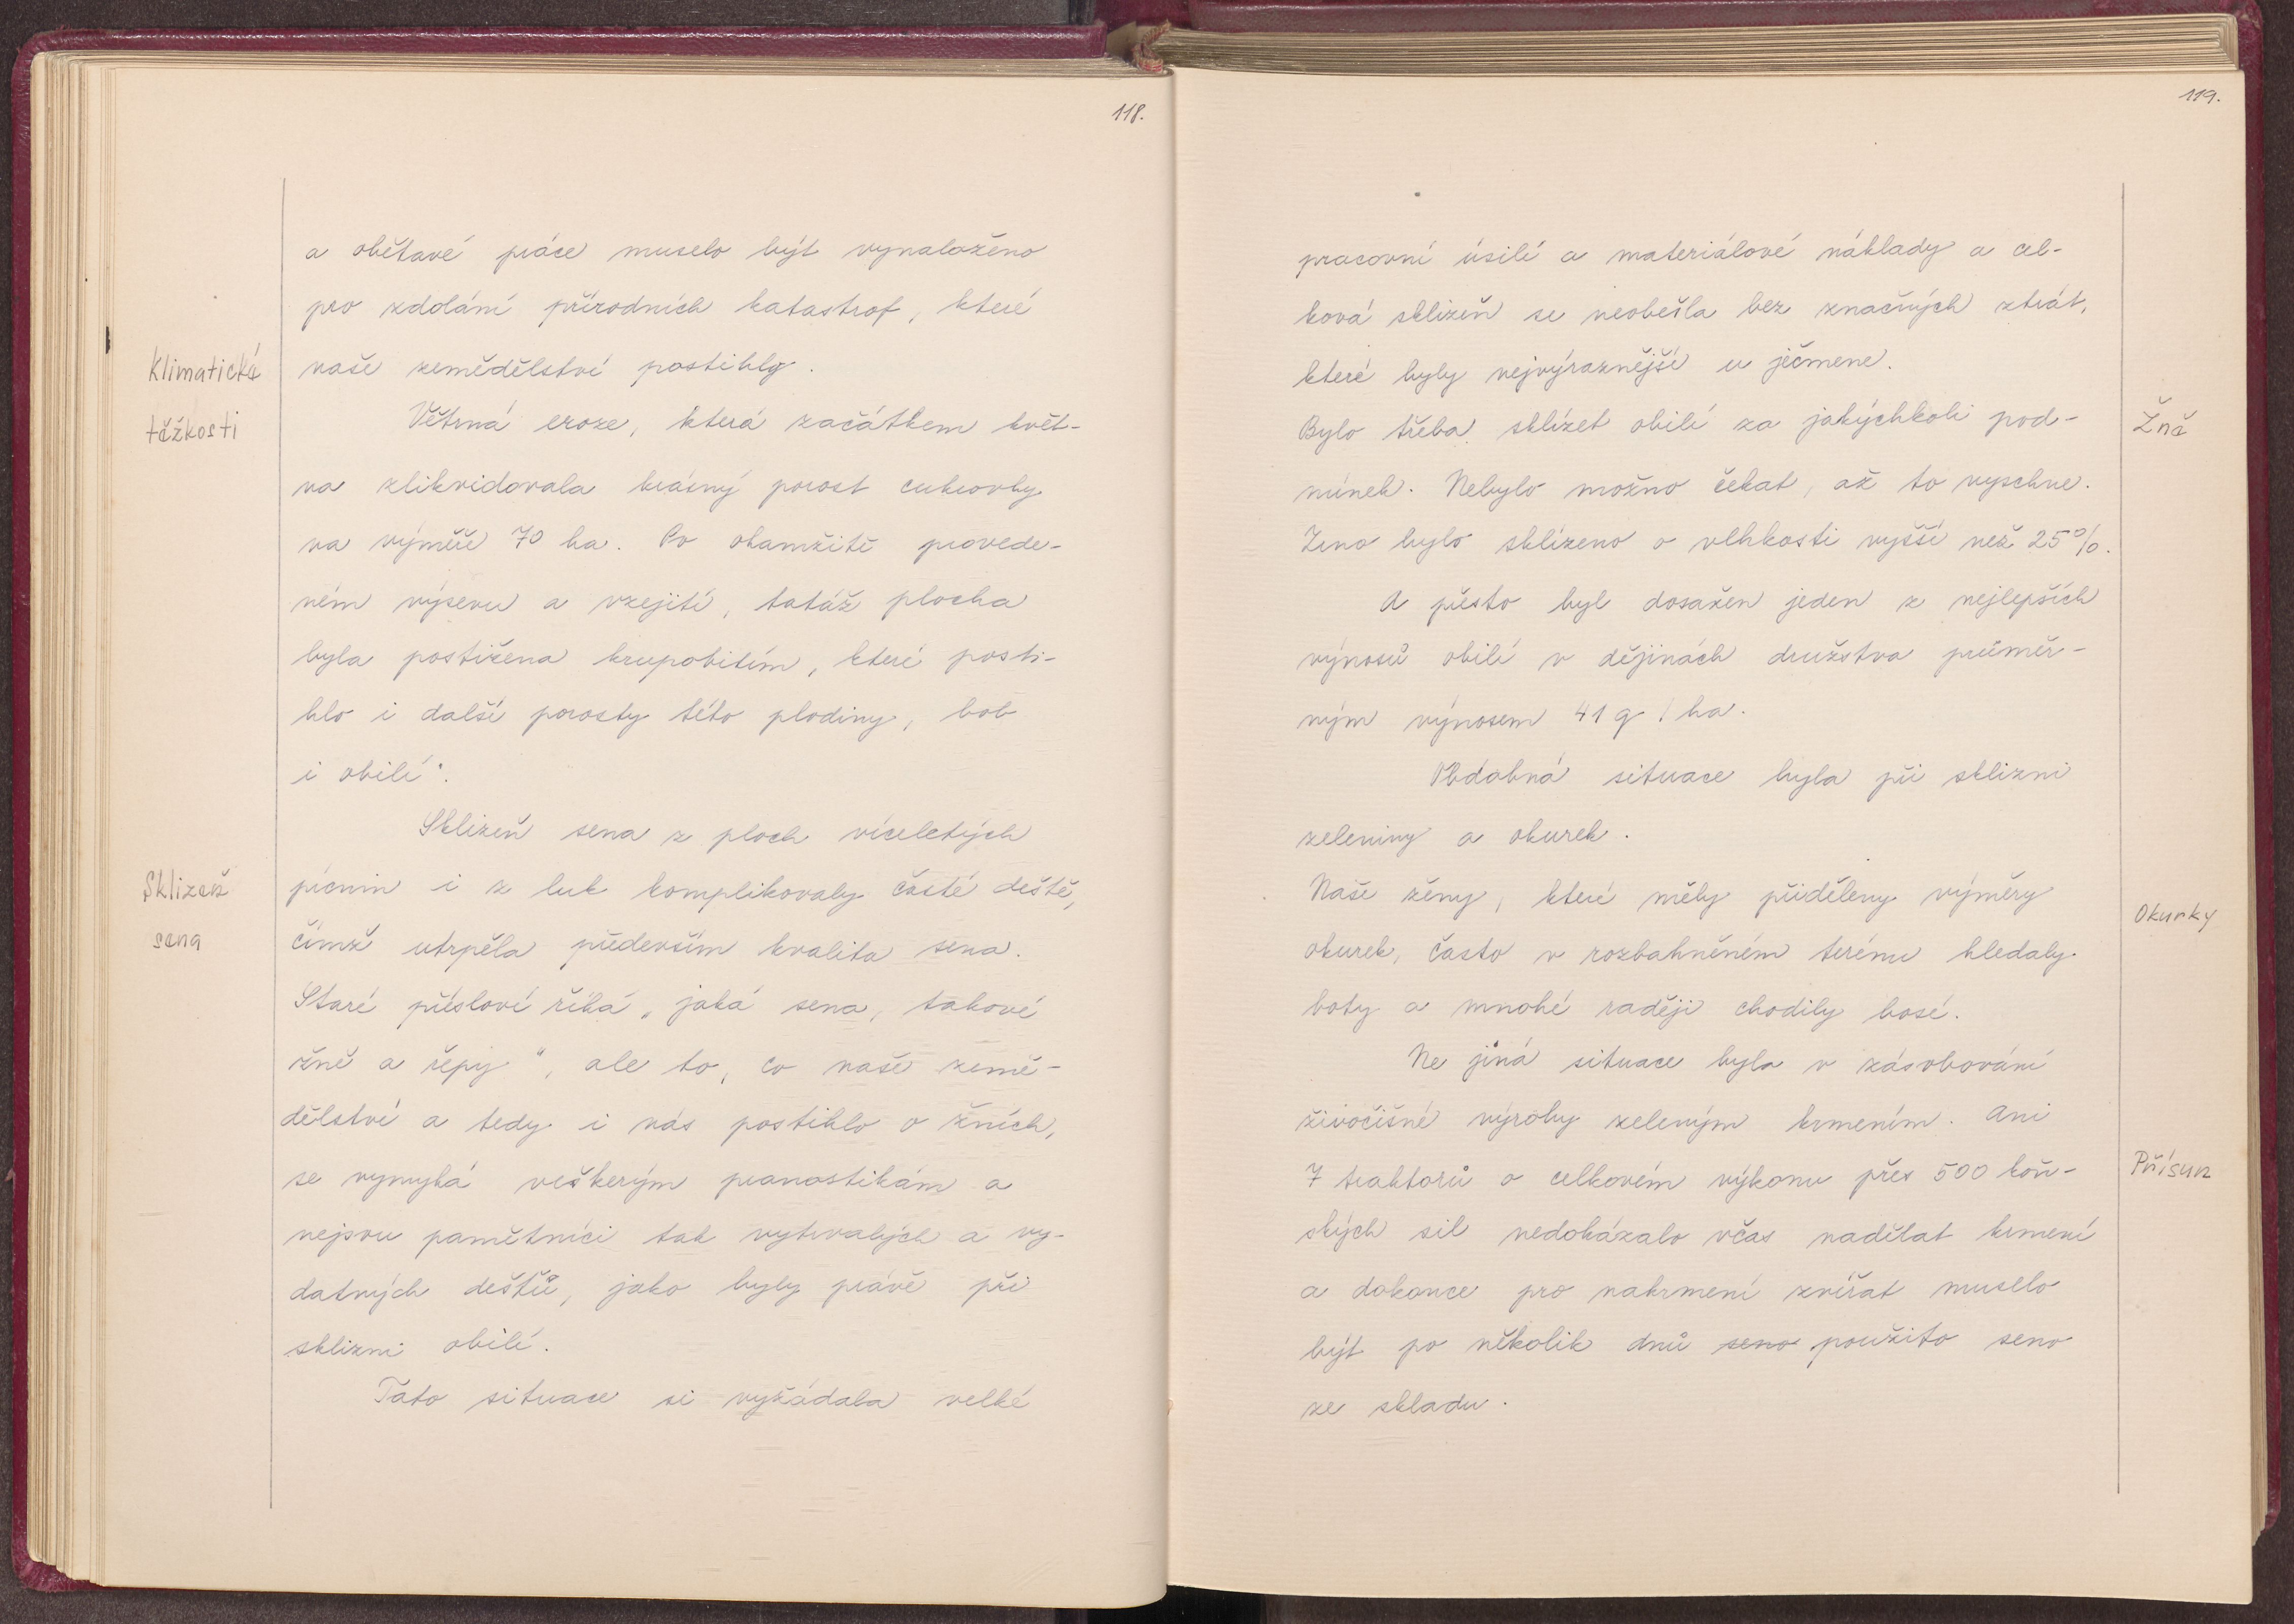 118.
a obětavé práce muselo být vynaloženo
pro zdolání přírodních katastrof, které
Klimatické
naše zemědělství postihly.
těžkosti
Větrná eroze, která začátkem květ-
na zlikvidovala krásný porost cukrovky
na výměře 70 ha. Po okamžitě provede-
ném výsevu a vzejití, tatáž plocha
byla postižena krupobitím, které posti-
hlo i další porosty této plodiny, bob
i obilí".
Sklizeň sena z ploch víceletých
Sklizeň
pícnin i z luk komplikovaly časté deště,
sena
čímž utrpěla především kvalita sena.
Staré přísloví říká „jaká sena, takové
žně a řepy", ale to, co naše země-
dělství a tedy i nás postihlo o žních,
se vymyká veškerým pranostikám a
nejsou pamětníci tak vytrvalých a vy-
datných dešťů, jako byly právě při
sklizni obilí.
Tato situace si vyžádala velké
119.
pracovní úsilí a materiálové náklady a cel-
ková sklizeň se neobešla bez značných ztrát,
které byly nejvýraznější u ječmene.
Bylo třeba sklízet obilí za jakýchkoli pod-
Žně
mínek. Nebylo možno čekat, až to vyschne.
Zrno bylo sklízeno o vlhkosti vyšší než 25%.
A přesto byl dosažen jeden z nejlepších
výnosů obilí v dějinách družstva průměr-
ným výnosem 41 q / ha.
Obdobná situace byla při sklizni
zeleniny a okurek.
Naše ženy, které měly přiděleny výměry
Okurky
okurek, často v rozbahněném terénu hledaly
boty a mnohé raději chodily bosé.
Ne jiná situace byla v zásobování
živočišné výroby zeleným krmením. Ani
7 traktorů o celkovém výkonu přes 500 koň-
Přísun
ských sil nedokázalo včas nadělat krmení
a dokonce pro nakrmení zvířat muselo
být po několik dnů seno použito seno
ze skladu.